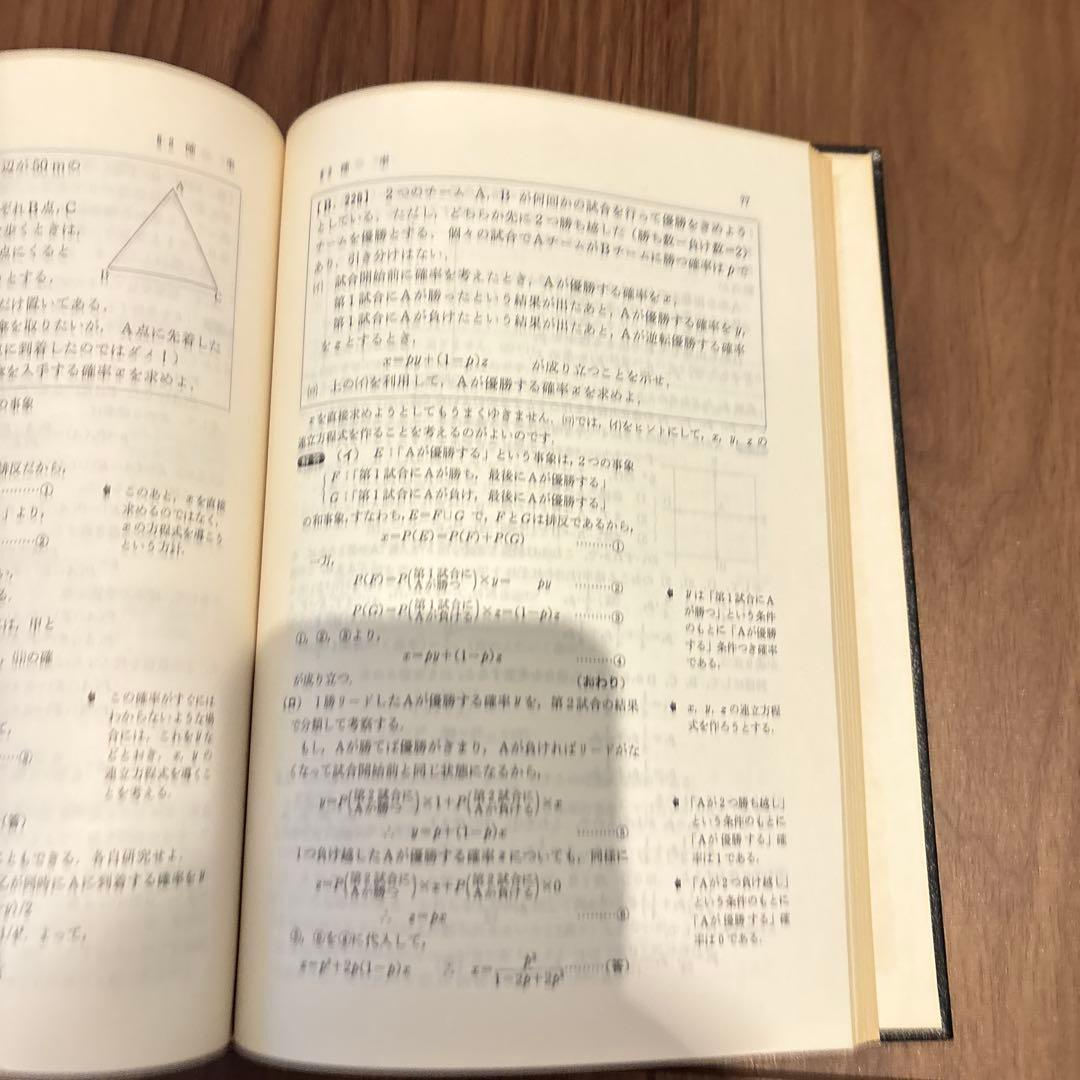 確 率
辺が50mの
A
ぞれB点,C
を歩くときは,
点にくると
B
とする.
C
だけ置いてある.
率を取りたいが, A点に先着した
に到着したのではダメ!)
を入手する確率xを求めよ,
の事象
排反だから,
………①
」より,
………②
このあと, xを直接
求めるのではなく,
xの方程式を導こう
という方針.
は, 甲と
の確
この確率がすぐには
わからないような場
合には, これをyな
どとおき, x, yの
連立方程式を導くこ
とを考える.
……③
(答)
こともできる. 各自研究せよ.
が同時にAに到着する確率をy
よって,
確 率
77
[B. 226] 2つのチーム A, B が何回かの試合を行って優勝をきめよう
としている. ただし, どちらか先に2つ勝ち越した (勝ち数−負け数=2)
チームを優勝とする. 個々の試合でAチームがBチームに勝つ確率はpで
あり, 引き分けはない.
(イ) 試合開始前に確率を考えたとき, Aが優勝する確率をx,
第1試合にAが勝ったという結果が出たあと, Aが優勝する確率をy,
第1試合にAが負けたという結果が出たあと, Aが逆転優勝する確率
をzとするとき,
x=py+(1−p)z が成り立つことを示せ,
(ロ) 上の(イ)を利用して, Aが優勝する確率xを求めよ,
xを直接求めようとしてもうまくゆきません. (ロ)では, (イ)をヒントにして, x, y, zの
連立方程式を作ることを考えるのがよいのです.
解答 (イ) E:「Aが優勝する」という事象は, 2つの事象
F:「第1試合にAが勝ち, 最後にAが優勝する」
G:「第1試合にAが負け, 最後にAが優勝する」
の和事象, すなわち, E=F∪G で, FとGは排反であるから,
x=P(E)=P(F)+P(G) ………①
一方,
P(F)=P(第1試合にAが勝つ)×y= py ………②
P(G)=P(第1試合にAが負ける)×z=(1−p)z ………③
①, ②, ③より,
x=py+(1−p)z ………④
が成り立つ. (おわり)
yは「第1試合にA
が勝つ」という条件
のもとに「Aが優勝
する」条件つき確率
である.
(ロ) 1勝リードしたAが優勝する確率yを, 第2試合の結果
で分類して考察する.
もし, Aが勝てば優勝がきまり, Aが負ければリードがな
くなって試合開始前と同じ状態になるから,
x, y, zの連立方程
式を作ろうとする.
y=P(第2試合にAが勝つ)×1+P(第2試合にAが負ける)×x
∴ y=p+(1−p)x ………⑤
「Aが2つ勝ち越し」
という条件のもとに
「Aが優勝する」確
率は1である.
1つ負け越したAが優勝する確率zについても, 同様に
z=P(第2試合にAが勝つ)×x+P(第2試合にAが負ける)×0
∴ z=px ………⑥
「Aが2つ負け越し」
という条件のもとに
「Aが優勝する」確
率は0である.
⑤, ⑥を④に代入して,
x=p²+2p(1−p)x ∴ x=p²/(1−2p+2p²) ………(答)